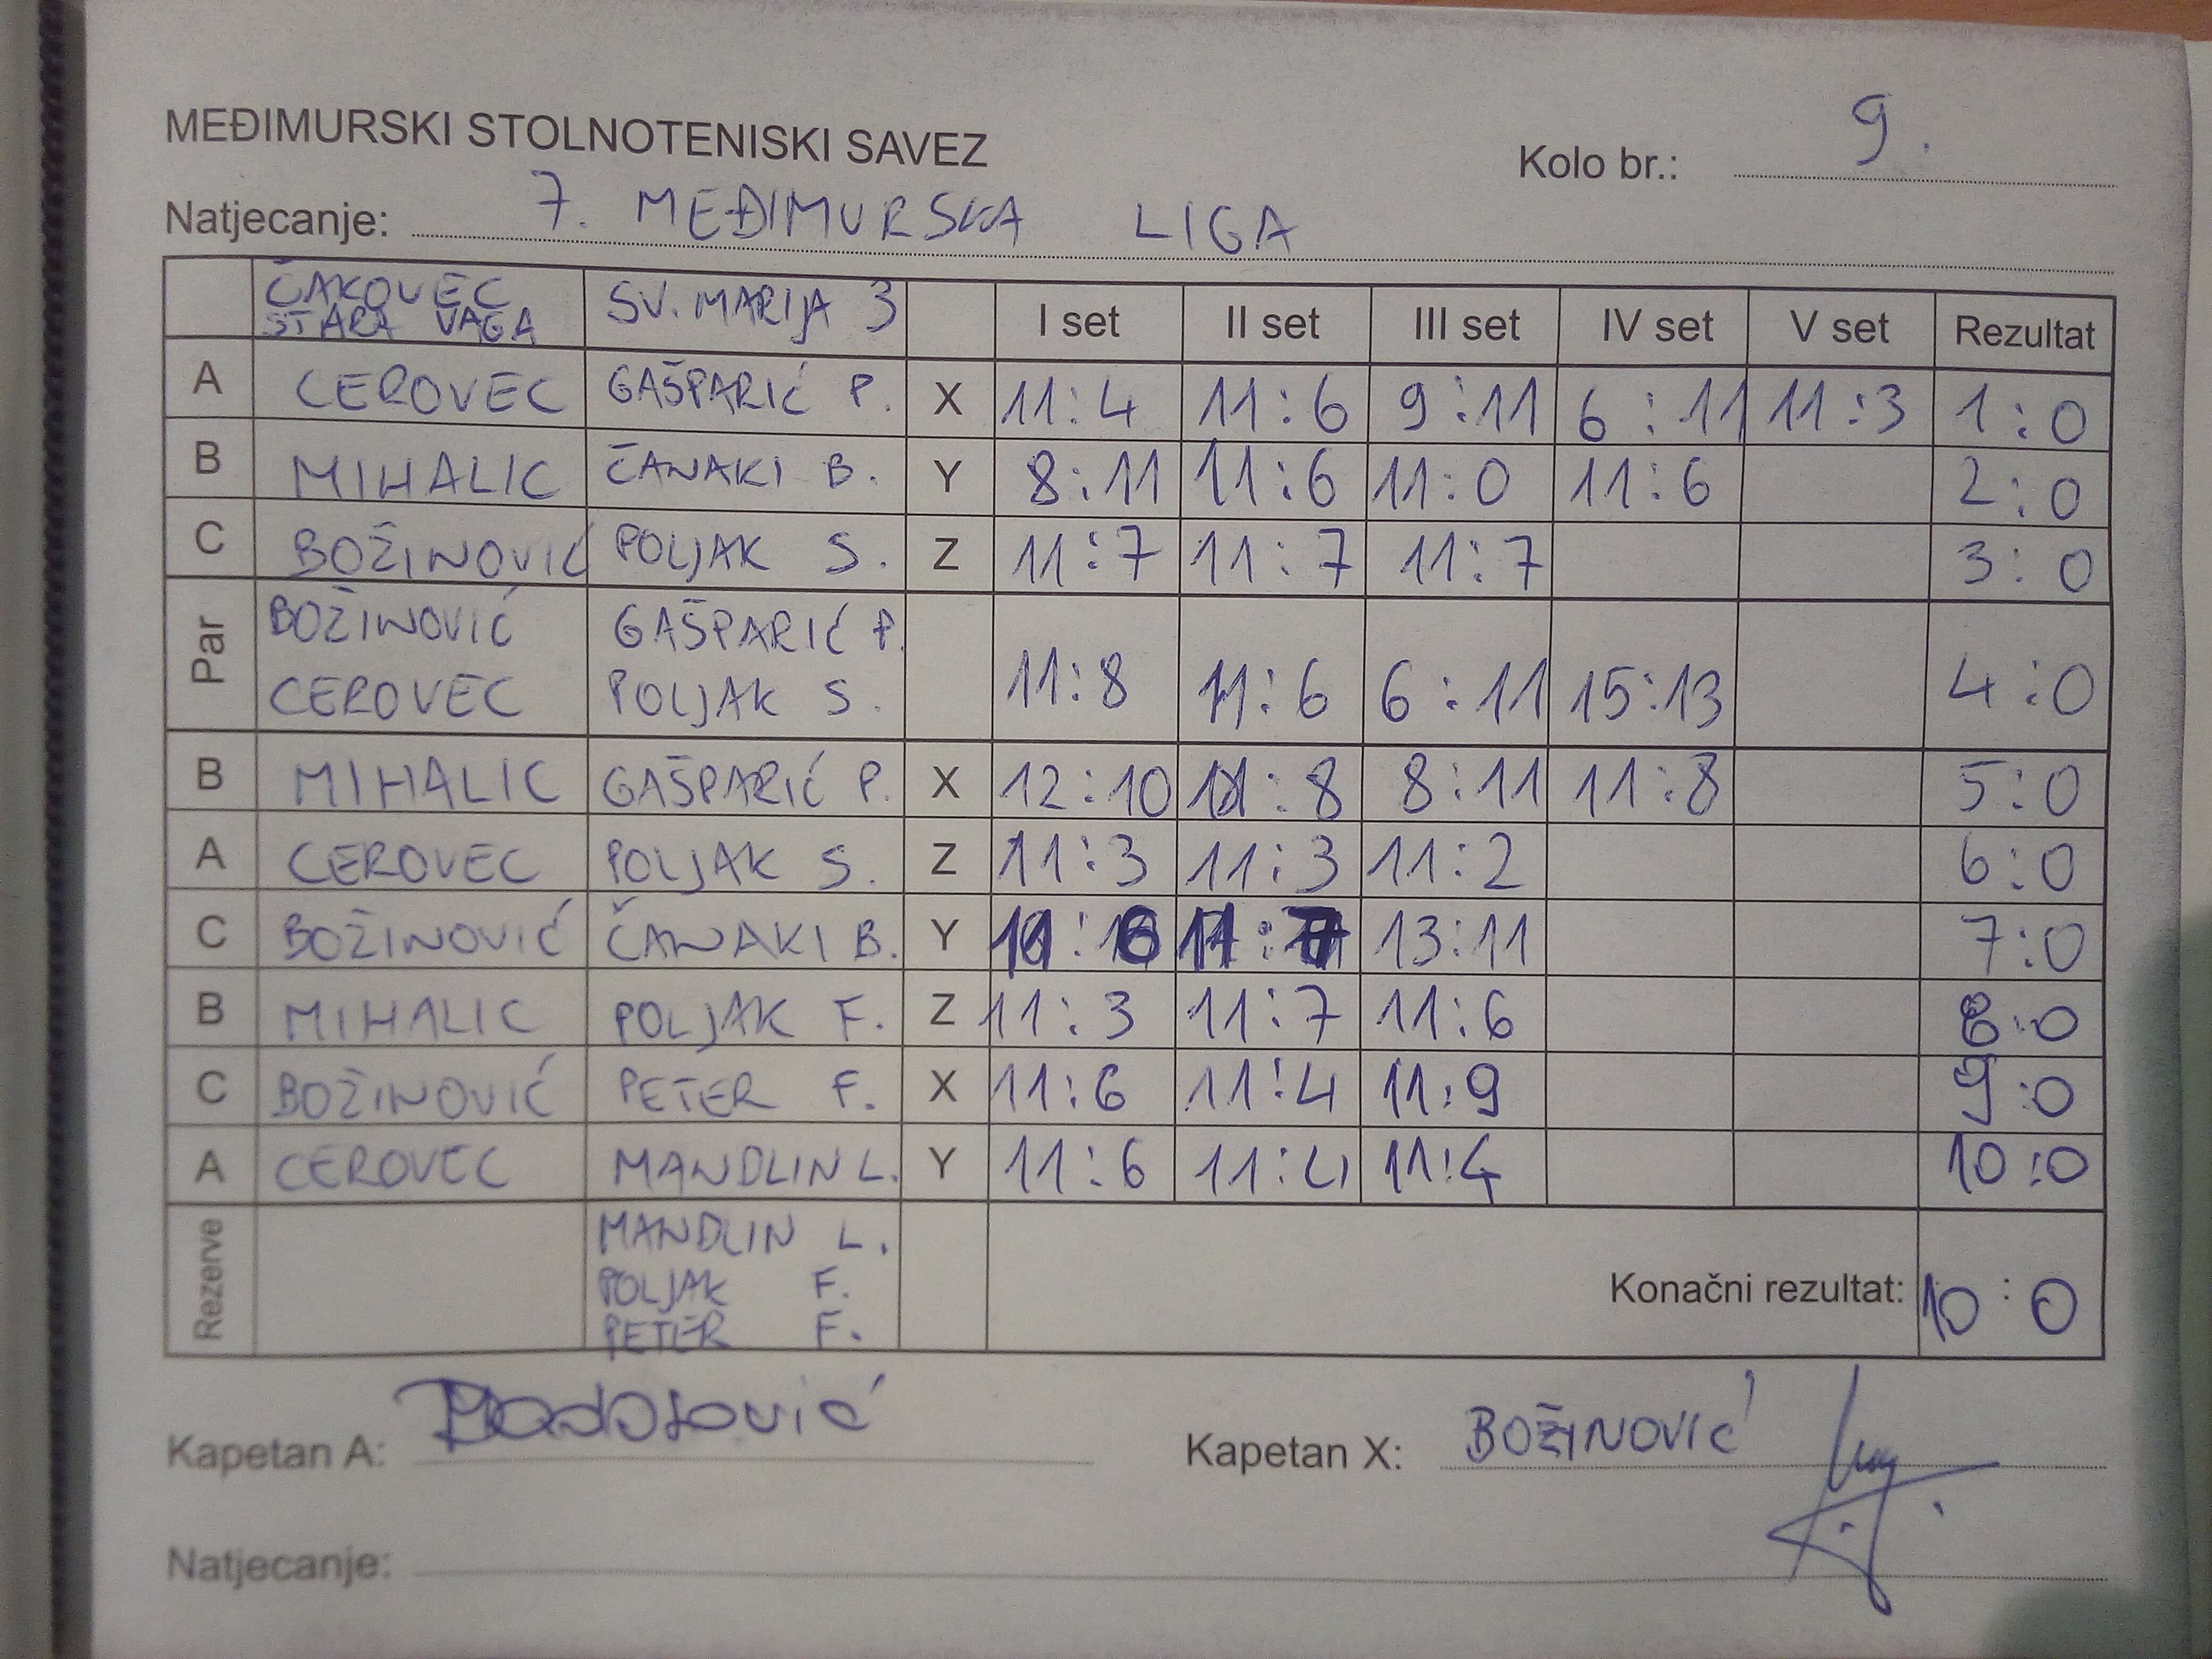 MEĐIMURSKI STOLNOTENISKI SAVEZ
Kolo br.: 9.
Natjecanje: 7. MEĐIMURSKA LIGA
ČAKOVEC STARA VAGA SV. MARIJA 3 I set II set III set IV set V set Rezultat
A CEROVEC GAŠPARIĆ P. X 11:4 11:6 9:11 6:11 11:3 1:0
B MIHALIC ČANAKI B. Y 8:11 11:6 11:0 11:6 2:0
C BOŽINOVIĆ POLJAK S. Z 11:7 11:7 11:7 3:0
Par BOŽINOVIĆ GAŠPARIĆ P.
CEROVEC POLJAK S. 11:8 11:6 6:11 15:13 4:0
B MIHALIC GAŠPARIĆ P. X 12:10 11:8 8:11 11:8 5:0
A CEROVEC POLJAK S. Z 11:3 11:3 11:2 6:0
C BOŽINOVIĆ ČANAKI B. Y 11:6 11:7 13:11 7:0
B MIHALIC POLJAK F. Z 11:3 11:7 11:6 8:0
C BOŽINOVIĆ PETER F. X 11:6 11:4 11:9 9:0
A CEROVEC MANDLIN L. Y 11:6 11:4 11:4 10:0
Rezerve MANDLIN L.
POLJAK F.
PETER F.
Konačni rezultat: 10:0
Kapetan A:
Kapetan X: BOŽINOVIĆ
Natjecanje: